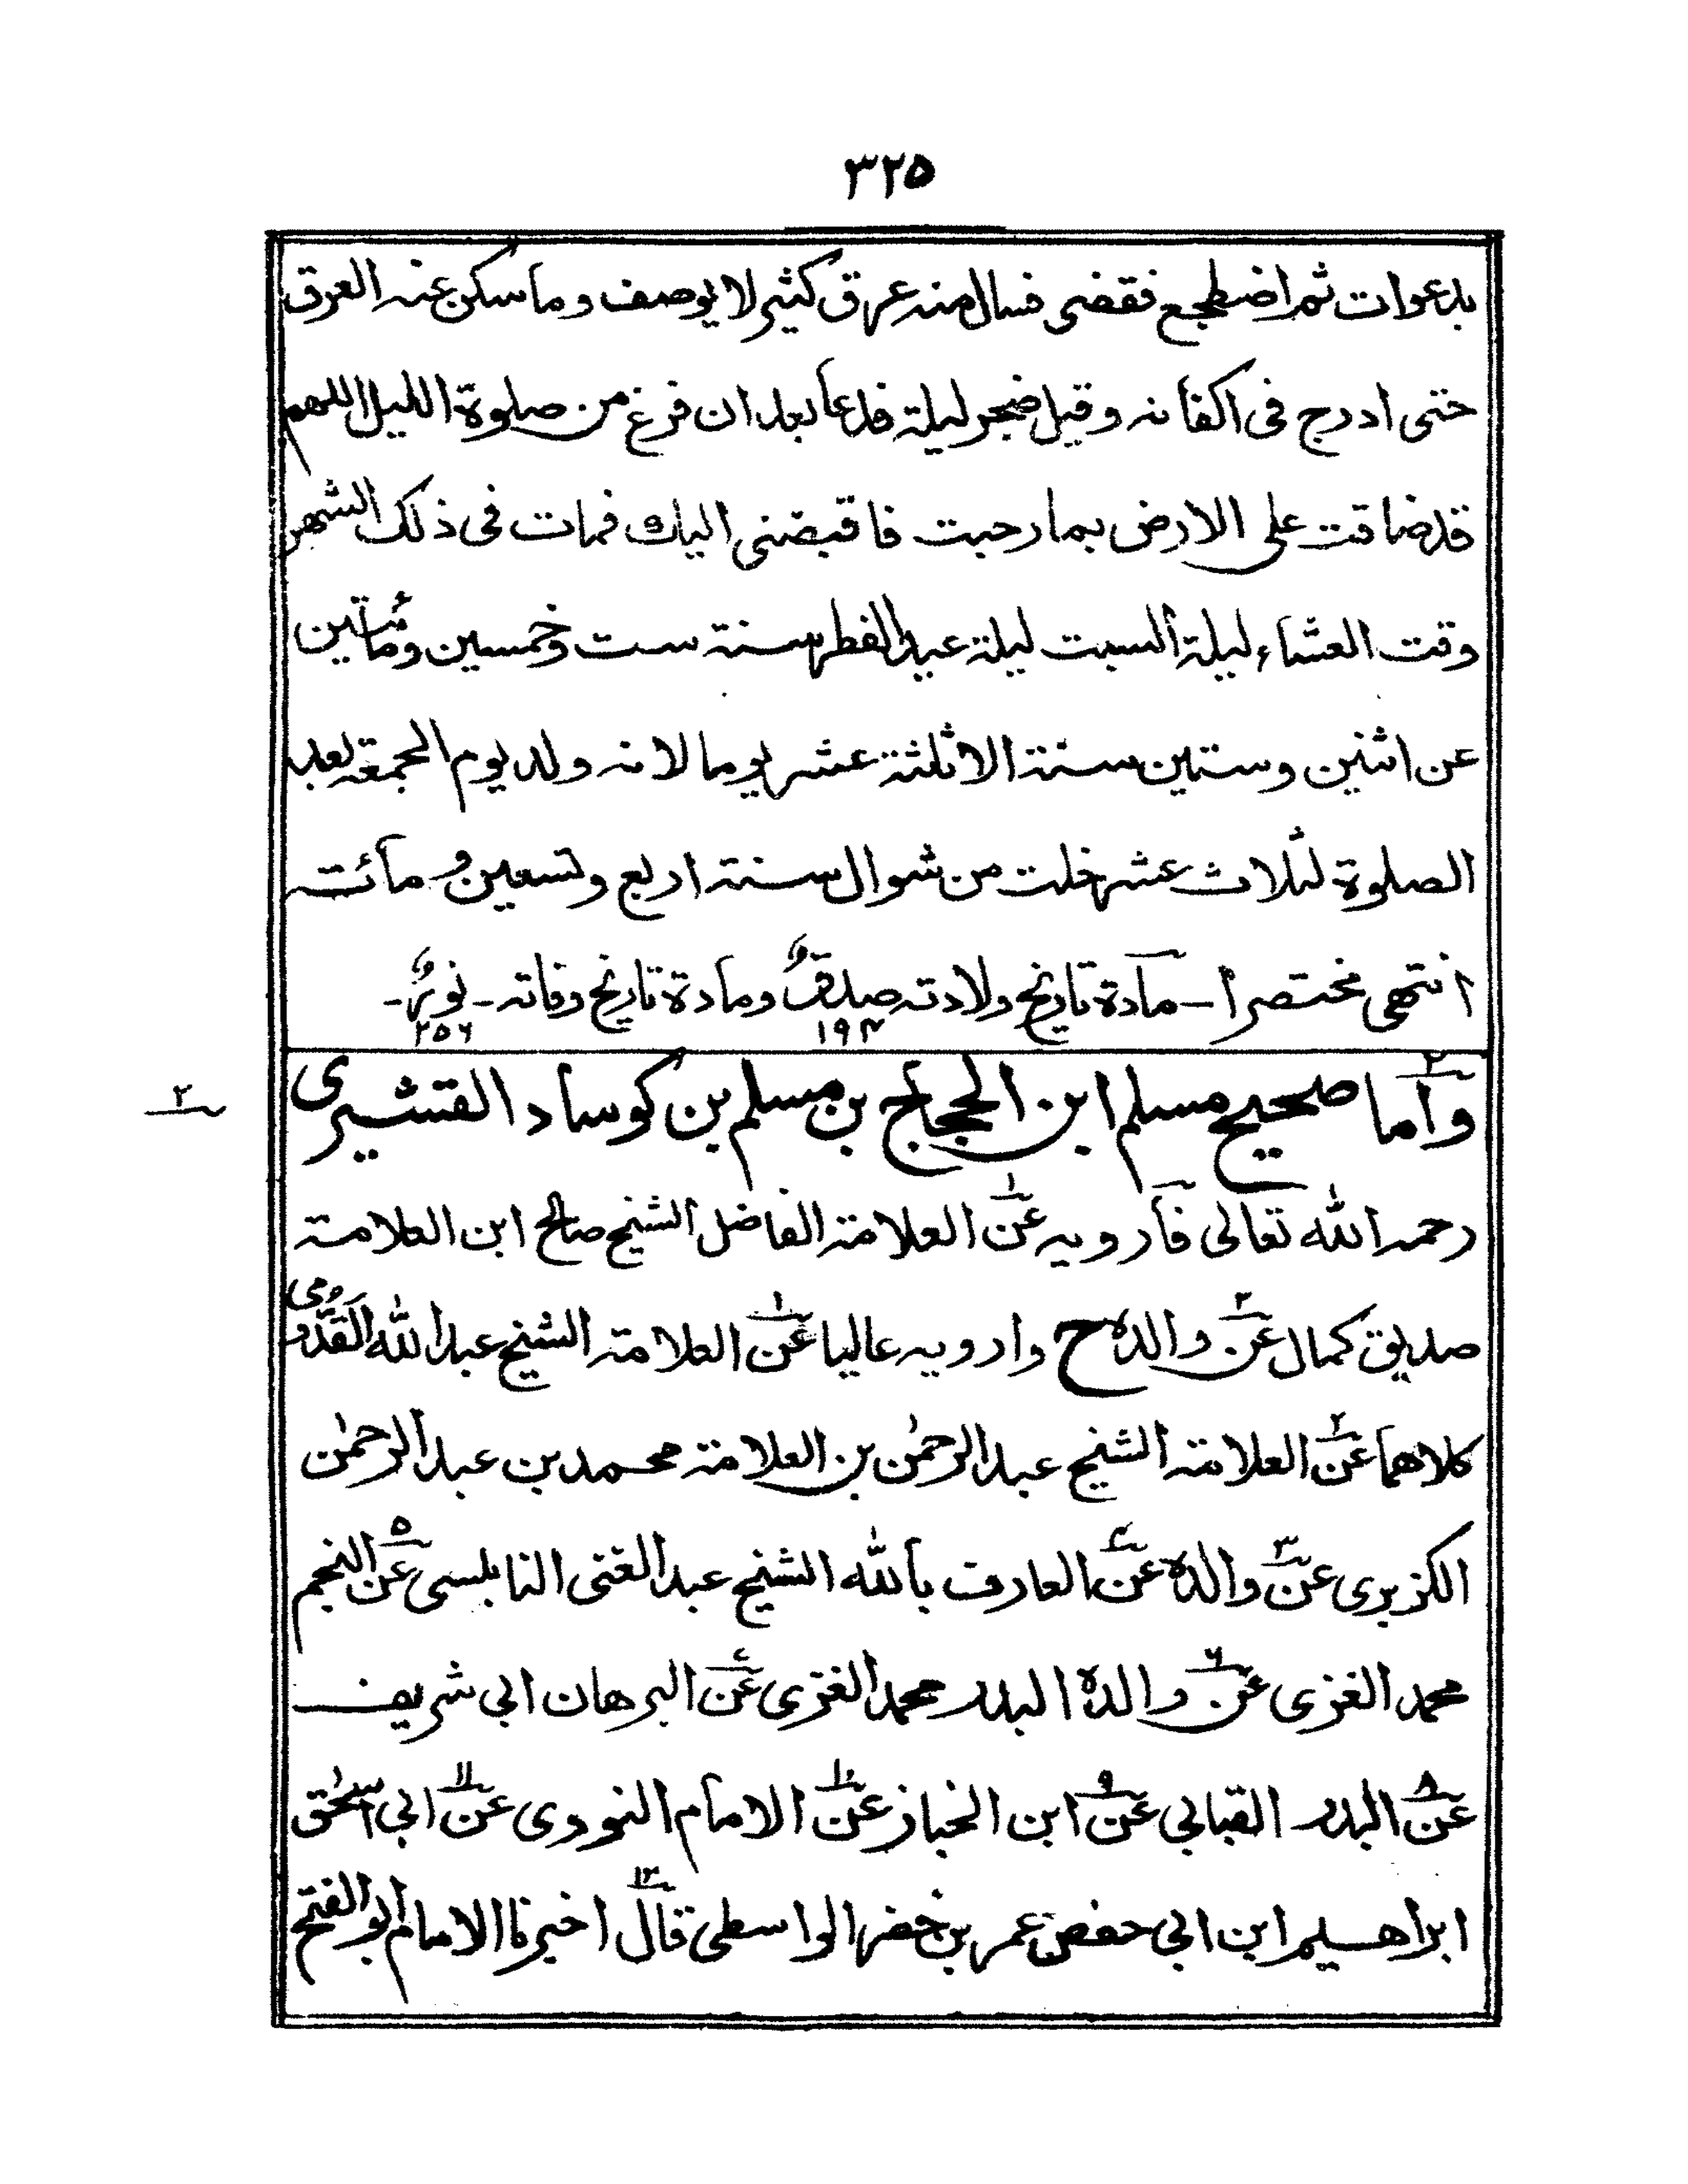 ٣٢٥
بدعوات ثم اضطجع فقضى فسال منه عرق كثير لا يوصف وما سكن عنه العرق
حتى ادرج فى اكفانه وقيل ضجر ليلة فدعا بعد ان فرغ من صلوة الليل اللهم
قد ضاقت على الارض بما رحبت فاقبضنى اليك فمات فى ذلك الشهر
وقت العشاء ليلة السبت ليلة عيد الفطر سنة ست وخمسين ومأتين
عن اثنين وستين سنة الا ثلثة عشر يوما لانه ولد يوم الجمعة بعد
الصلوة لثلاث عشر خلت من شوال سنة اربع وتسعين ومائته
انتهى مختصرا - مادة تاريخ ولادته صدقٌ ومادة تاريخ وفاته - نورٌ -
١٩٤ ٢٥٦
٢
واما صحيح مسلم ابن الحجاج بن مسلم بن كوساد القشيرى
رحمه الله تعالى فأرويه عن١ العلامة الفاضل الشيخ صالح ابن العلامة
صديق كمال عن٢ والده ح وارويه عاليا عن١ العلامة الشيخ عبد الله القَدُّومى
كلاهما عن٢ العلامة الشيخ عبد الرحمٰن بن العلامة محمد بن عبد الرحمٰن
الكزبرى عن٣ والده عن٤ العارف بالله الشيخ عبد الغنى النابلسى عن٥ النجم
محمد الغزى عن٦ والده البدر محمد الغزى عن٧ البرهان ابي شريف
عن٨ البدر القبابي عن٩ ابن الخباز عن١٠ الامام النووى عن١١ ابي اسحٰق
ابراهيم ابن ابي حفص عمر بن خضر الواسطى قال١٢ اخبرنا الامام ابو الفتح